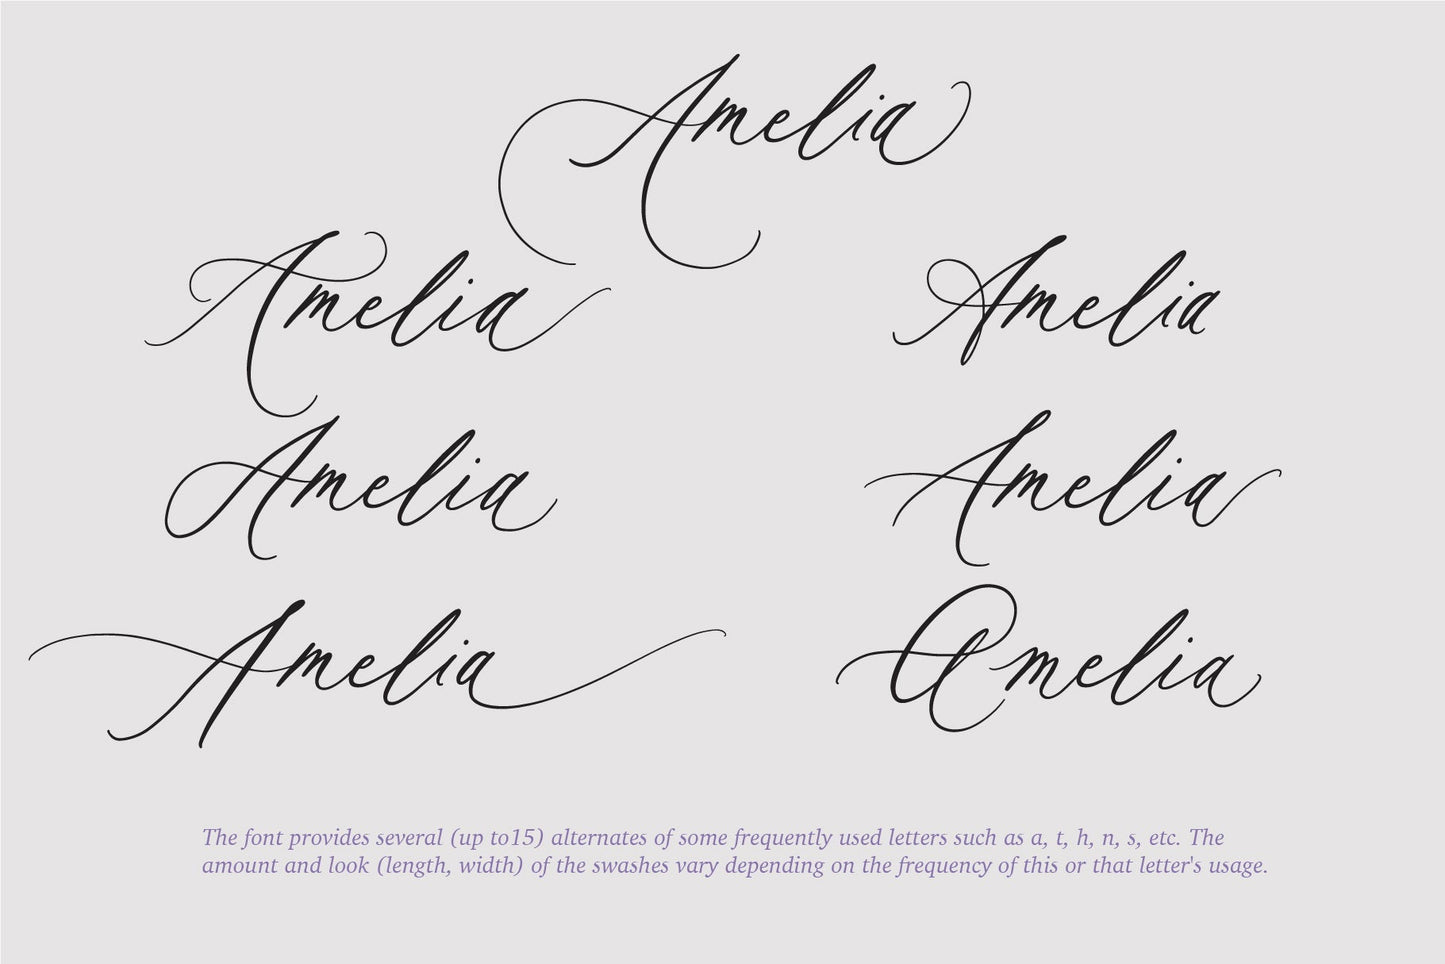 Amelia
Amelia
Amelia
Amelia
Amelia
Amelia
Amelia
The font provides several (up to15) alternates of some frequently used letters such as a, t, h, n, s, etc. The
amount and look (length, width) of the swashes vary depending on the frequency of this or that letter's usage.